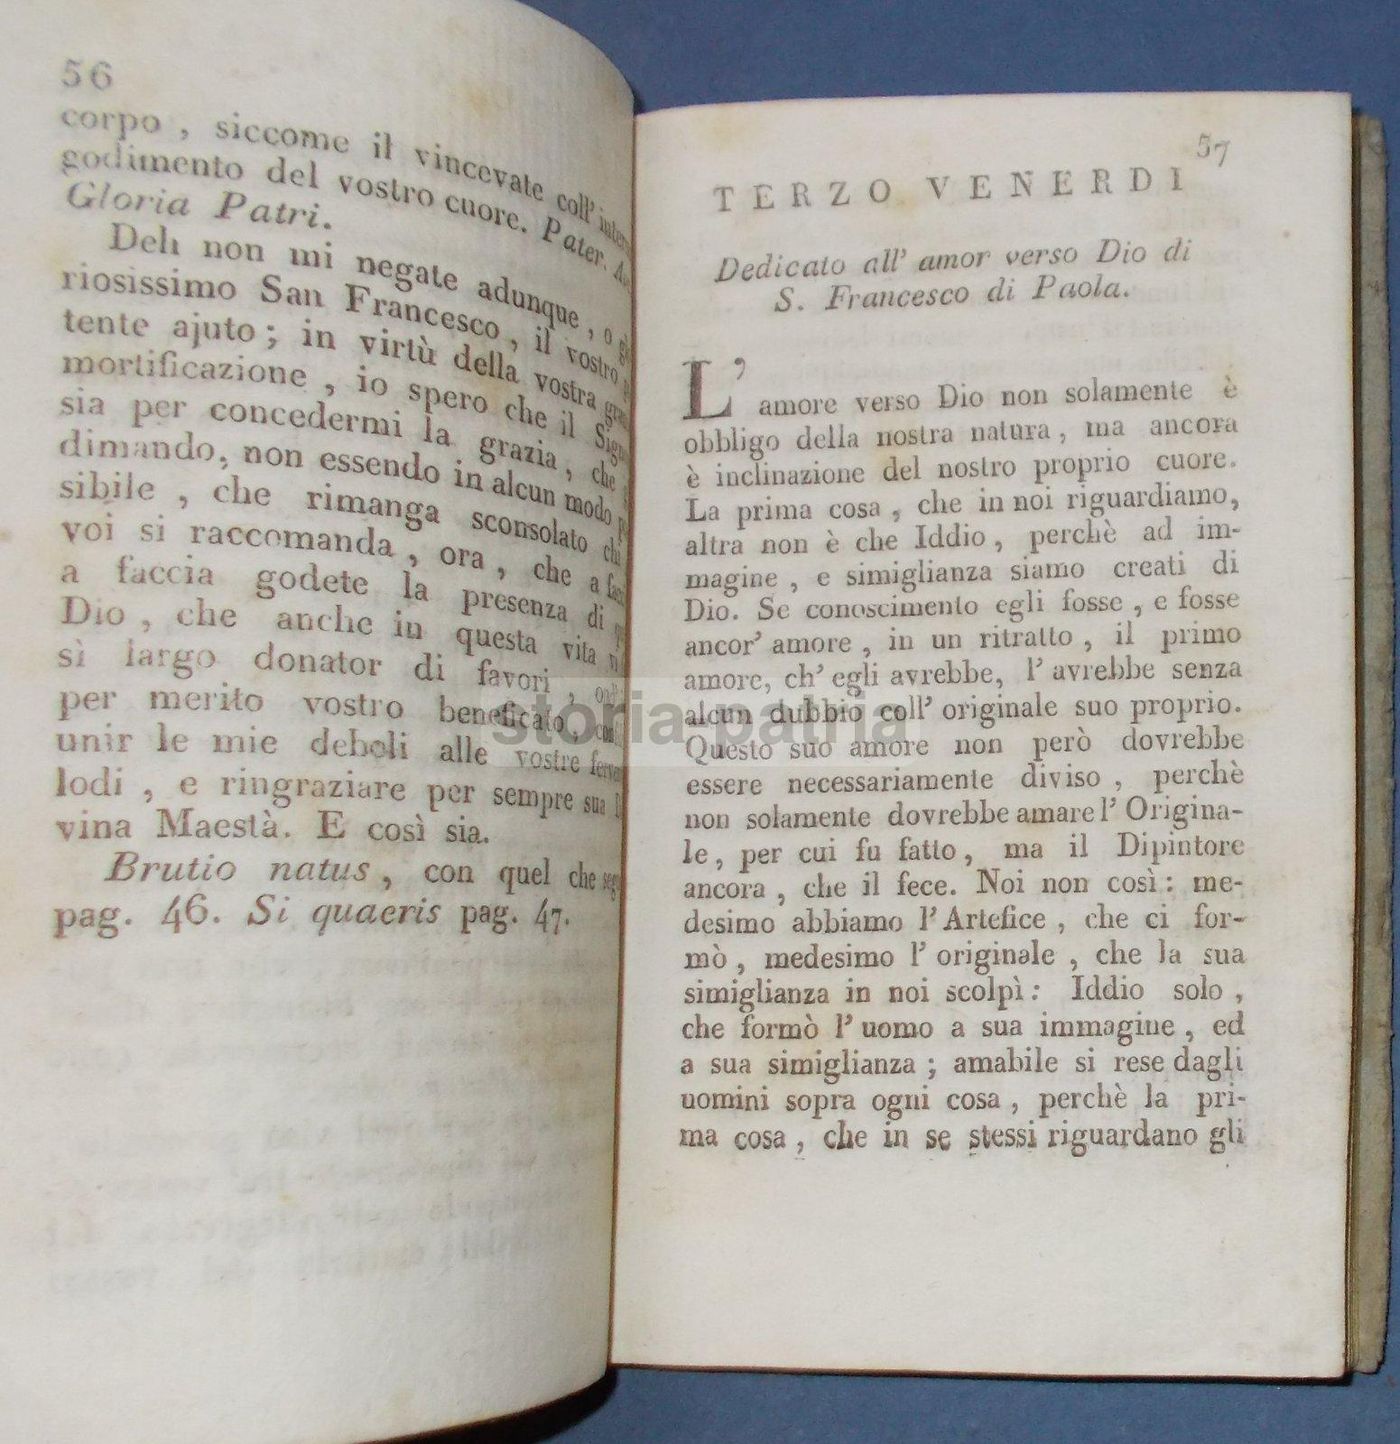 56
corpo , siccome il vincevate coll'
godimento del vostro cuore. Pater.
Gloria Patri.
Deh non mi negate adunque , o
riosissimo San Francesco , il vostro
tente ajuto ; in virtù della vostra
mortificazione , io spero che il
sia per concedermi la grazia , che
dimando, non essendo in alcun modo
sibile , che rimanga sconsolato chi
voi si raccomanda , ora , che a
a faccia godete la presenza di
Dio , che anche in questa vita
sì largo donator di favori ,
per merito vostro beneficato ,
unir le mie deboli alle vostre
lodi , e ringraziare per sempre sua
vina Maestà. E così sia.
Brutio natus , con quel che
pag. 46. Si quaeris pag. 47.
57
TERZO VENERDI
Dedicato all' amor verso Dio di
S. Francesco di Paola.
L' amore verso Dio non solamente è
obbligo della nostra natura , ma ancora
è inclinazione del nostro proprio cuore.
La prima cosa , che in noi riguardiamo,
altra non è che Iddio , perchè ad im-
magine , e simiglianza siamo creati di
Dio. Se conoscimento egli fosse , e fosse
ancor' amore , in un ritratto , il primo
amore, ch' egli avrebbe, l' avrebbe senza
alcun dubbio coll' originale suo proprio.
Questo suo amore non però dovrebbe
essere necessariamente diviso , perchè
non solamente dovrebbe amare l' Origina-
le , per cui fu fatto , ma il Dipintore
ancora , che il fece. Noi non così : me-
desimo abbiamo l' Artefice , che ci for-
mò , medesimo l' originale , che la sua
simiglianza in noi scolpì : Iddio solo ,
che formò l' uomo a sua immagine , ed
a sua simiglianza ; amabile si rese dagli
uomini sopra ogni cosa , perchè la pri-
ma cosa , che in se stessi riguardano gli
storia patria